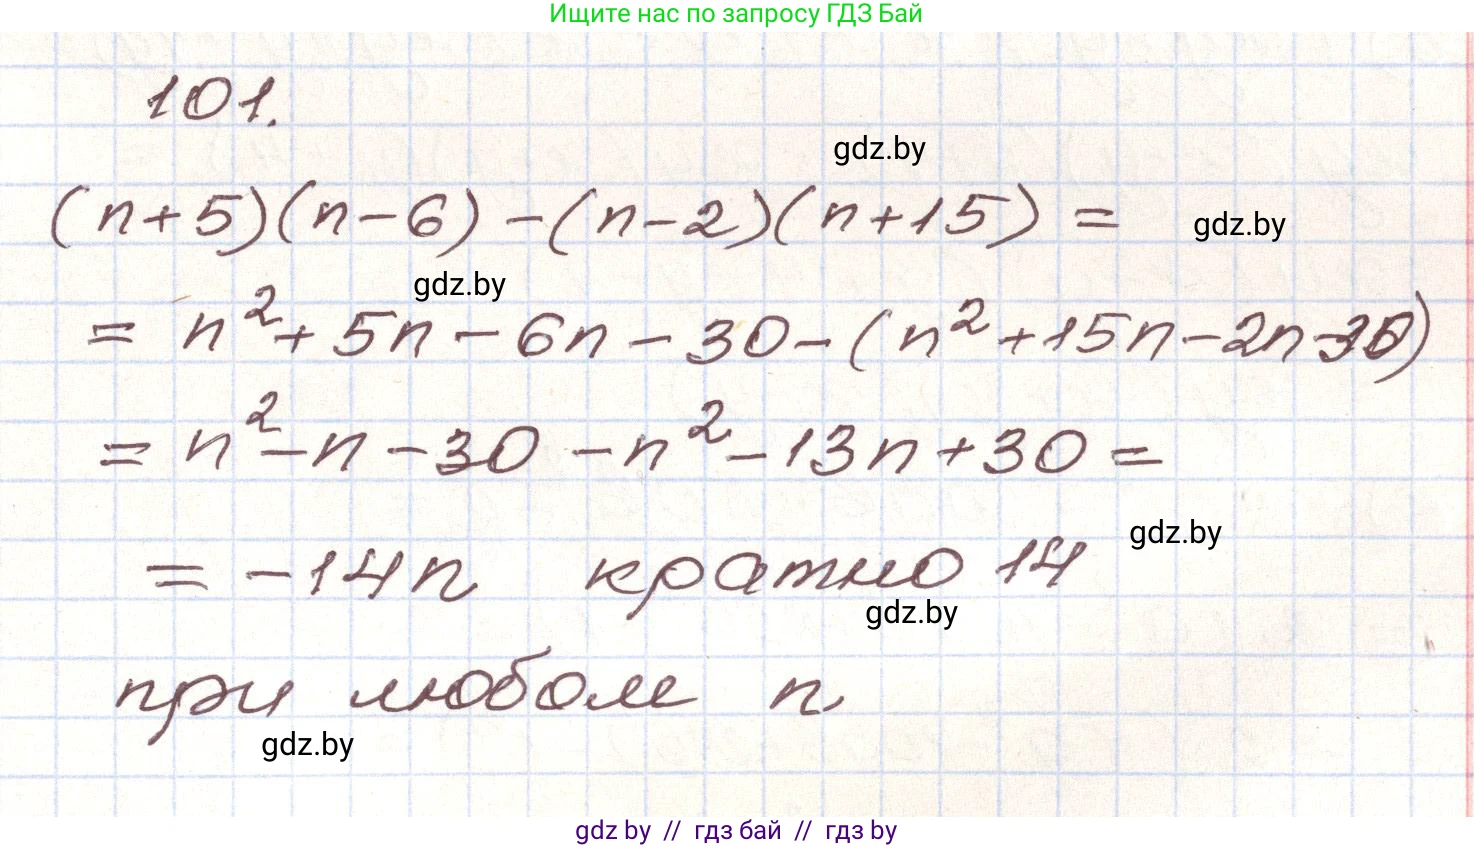 Ищите нас по запросу ГДЗ Бай
101.
gdz.by
(n+5)(n-6)-(n-2)(n+15)=
gdz.by
gdz.by
= n²+5n-6n-30-(n²+15n-2n-30)
= n²-n-30-n²-13n+30=
gdz.by
= -14n кратно 14
gdz.by
при любом n
gdz.by
gdz by // гдз бай // гдз by